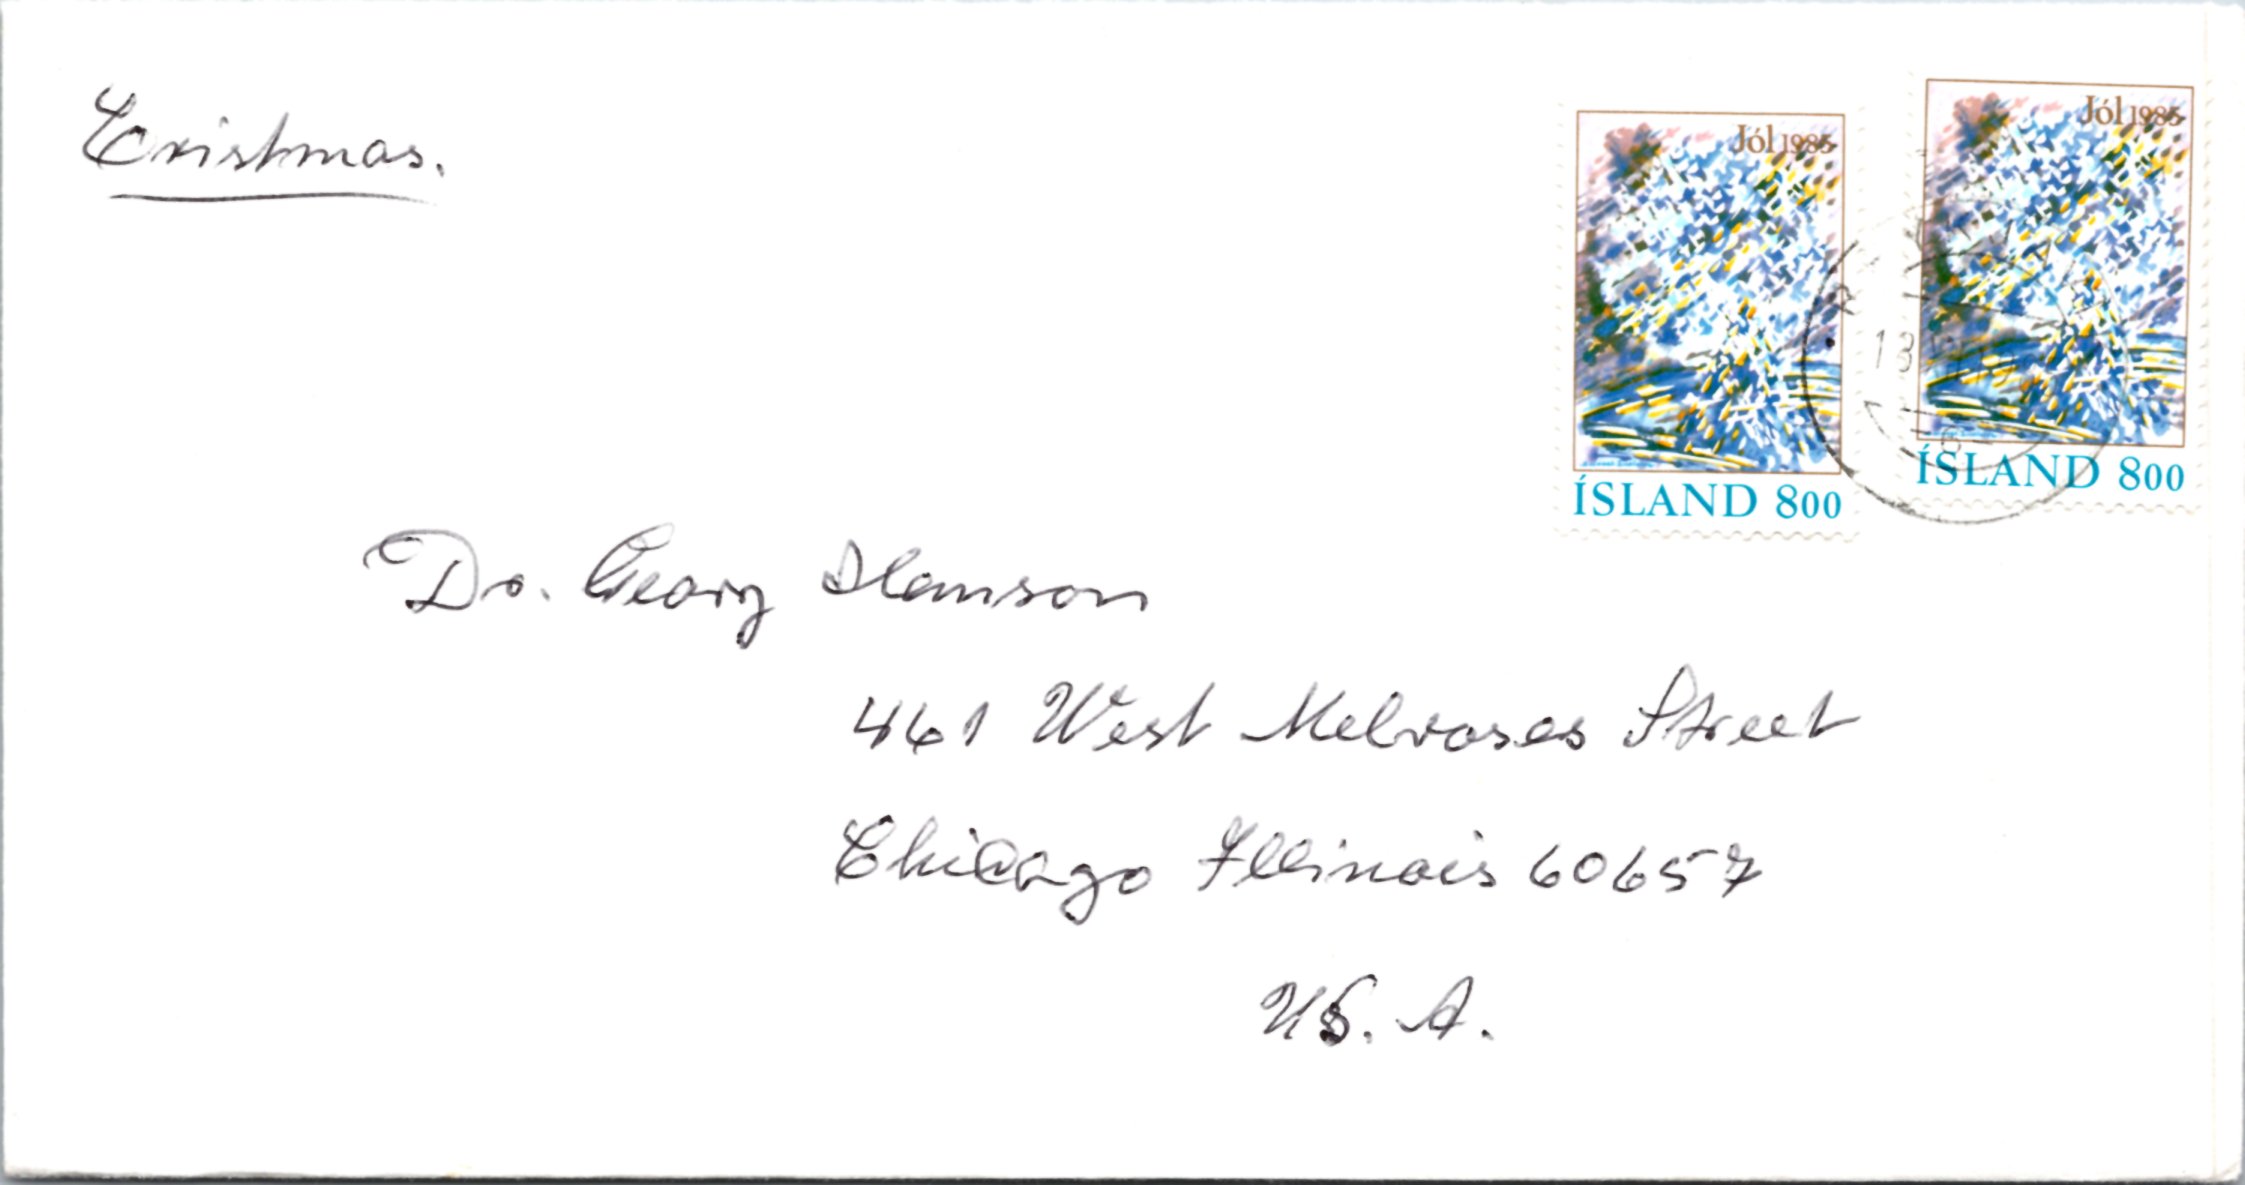 Cristmas.
Jól 1985
ÍSLAND 800
Jól 1985
ÍSLAND 800
13
6
Dr. Georg Hanson
461 West Melroses Street
Chicago Illinois 60657
U.S. A.